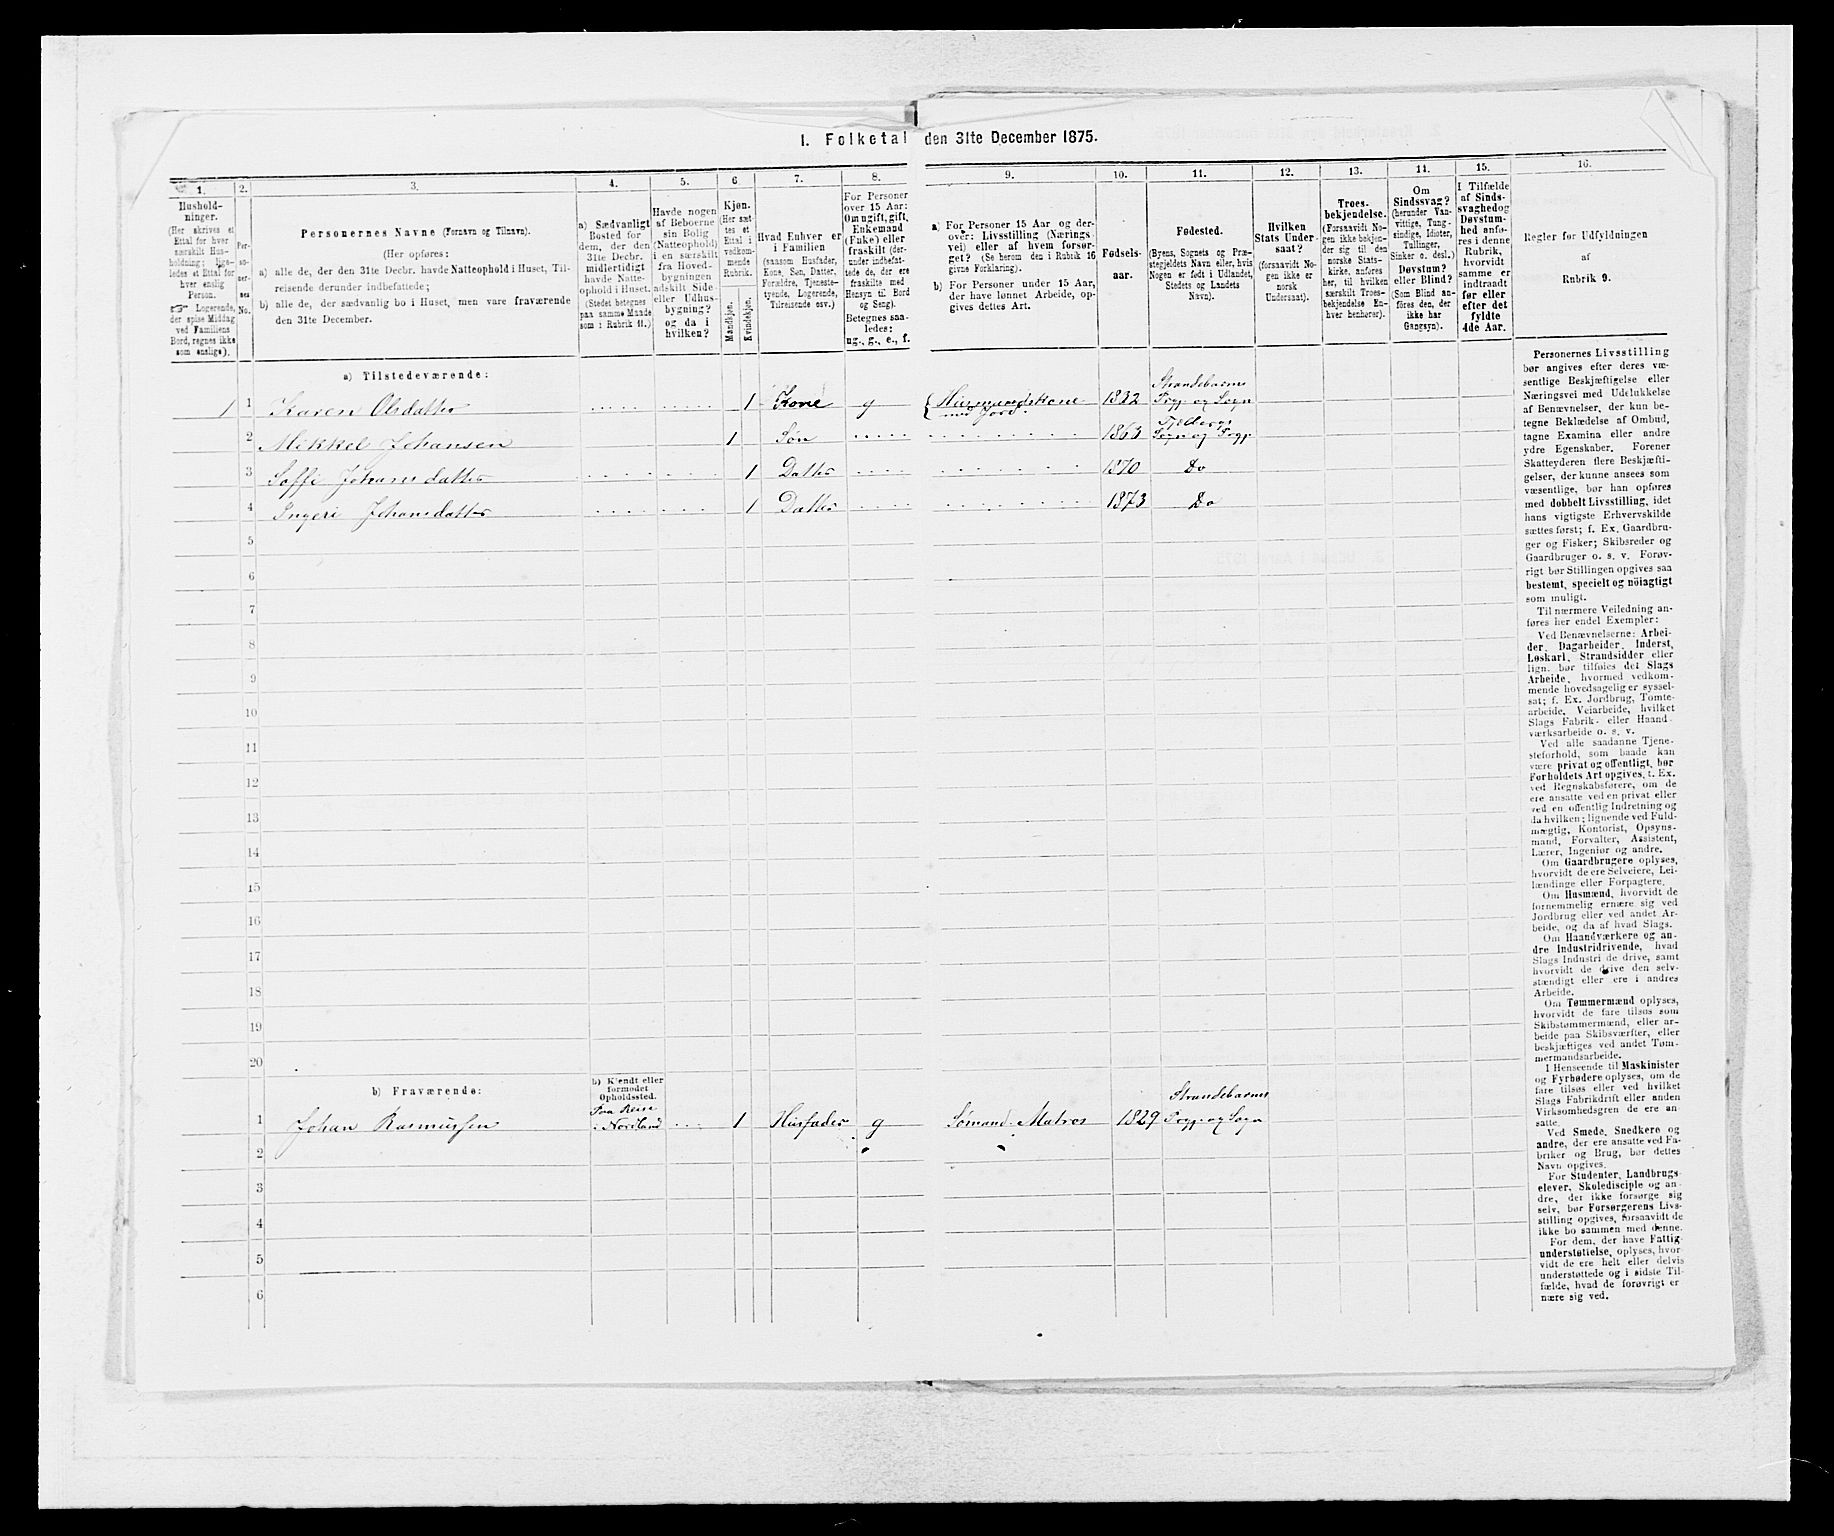 1. Folketal den 31te December 1875.
1.
Hushold-
ninger.
(Her skrives et
Ettal for hver
særskilt Hus-
holdning; lige-
ledes et Ettal for
hver enslig
Person.
Logerende,
der spise Middag
ved Familiens
Bord, regnes ikke
som enslige).
2.
Per-
so-
ner-
nes
No.
3.
Personernes Navne (Fornavn og Tilnavn).
(Her opføres:
a) alle de, der den 31te Decbr. havde Natteophold i Huset, Til-
reisende derunder indbefattede;
b) alle de, der sædvanlig bo i Huset, men vare fraværende
den 31te December.
4.
a) Sædvanligt
Bosted for
dem, der den
31te Decbr.
midlertidigt
havde Natte-
ophold i Huset.
(Stedet betegnes
paa samme Maade
som i Rubrik 11.)
5.
Havde nogen
af Beboerne
sin Bolig
(Natteophold)
i en særskilt
fra Hoved-
bygningen
adskilt Side-
eller Udhus-
bygning?
og da i
hvilken?
6
Kjøn.
(Her sæt-
tes et
Ettal i
vedkom-
mende
Rubrik.
Mandkjøn.
Kvindekjøn.
7.
Hvad Enhver er
i Familien
(saasom Husfader,
Kone, Søn, Datter,
Forældre, Tjeneste-
tyende, Logerende,
Tilreisende osv.)
8.
For Personer
over 15 Aar:
Om ugift, gift,
Enkemand
(Enke) eller
fraskilt (der-
under indbefat-
tede de, der ere
fraskilte med
Hensyn til Bord
og Seng).
Betegnes saa-
ledes:
ug., g., e., f.
9.
a) For Personer 15 Aar og der-
over: Livsstilling (Nærings-
vei) eller af hvem forsør-
get? (Se herom den i Rubrik 16
givne Forklaring).
b) For Personer under 15 Aar,
der have lønnet Arbeide, op-
gives dettes Art.
10.
Fødsels-
aar.
11.
Fødested.
(Byens, Sognets og Præ-
stegjeldets Navn eller, hvis
Nogen er født i Udlandet,
Stedets og Landets
Navn).
12.
Hvilken
Stats Under-
saat?
(forsaavidt No-
gen ikke er
norsk
Undersaat).
13.
Troes-
bekjendelse.
(Forsaavidt No-
gen ikke bekjen-
der sig til den
norske Stats-
kirke, anføres
her, til hvilken
særskilt Troes-
bekjendelse En-
hver henhører).
14.
Om
Sindssvag?
(herunder Van-
vittige, Tung-
sindige, Idioter,
Tullinger,
Sinker o. desl.)
Døvstum?
eller Blind?
(Som Blind an-
føres den, der
ikke har
Gangsyn).
15.
I Tilfælde
af Sinds-
svaghed og
Døvstum-
hed anfø-
res i denne
Rubrik,
hvorvidt
samme er
indtraadt
før eller
efter det
fyldte
4de Aar.
16.
Regler for Udfyldningen
af
Rubrik 9.
a) Tilstedeværende:
Strandebarms
1 1 Karen Olsdatter 1 Kone g Huusmandskone 1832 Prgj. og Sogn
med Jord.
2 Mikkel Johansen 1 Søn 1863 Sogn og Prgj.
3 Soffi Johansdatter 1 Datter 1870 Do
4 Ingeri Johansdatter 1 Datter 1873 Do
5
6
7
8
9
10
11
12
13
14
15
16
17
18
19
20
b) Fraværende:
b) Kjendt eller
formodet
Opholdssted.
Strandebarms
Paa Reise
1 Johan Rasmussen i Nordland 1 Husfader g Sømand. Matros 1829 Prgj. og Sogn
2
3
4
5
6
Personernes Livsstilling
bør angives efter deres væ-
sentlige Beskjæftigelse eller
Næringsvei med Udelukkelse
af Benævnelser, der kun be-
tegne Beklædelse af Ombud,
tagne Examina eller andre
ydre Egenskaber. Forener
Skatteyderen flere Beskjæfti-
gelser, der kunne ansees som
væsentlige, bør han opføres
med dobbelt Livsstilling, idet
hans vigtigste Erhvervskilde
sættes først; f. Ex. Gaardbru-
ger og Fisker; Skibsreder og
Gaardbruger o. s. v. Forøv-
rigt bør Stillingen opgives saa
bestemt, specielt og nöiagtigt
som muligt.
Til nærmere Veiledning an-
føres her endel Exempler:
Ved Benævnelserne: Arbei-
der, Dagarbeider, Inderst,
Løskarl, Strandsidder eller
lign. bør tilføies det Slags
Arbeide, hvormed vedkom-
mende hovedsagelig er syssel-
sat; f. Ex. Jordbrug, Tomte-
arbeide, Veiarbeide, hvilket
Slags Fabrik- eller Haand-
værksarbeide o. s. v.
Ved alle saadanne Tjene-
steforhold, som baade kan
være privat og offentligt, bør
Forholdets Art opgives, t. Ex.
ved Regnskabsførere, om de
ere ansatte ved en privat eller
ved en offentlig Indretning og
da hvilken; lignende ved Fuld-
mægtig, Kontorist, Opsyns-
mand, Forvalter, Assistent,
Lærer, Ingeniør og andre.
Om Gaardbrugere oplyses,
hvorvidt de ere Selveiere, Lei-
lændinge eller Forpagtere.
Om Husmænd, hvorvidt de
fornemmelig ernære sig ved
Jordbrug eller ved andet Ar-
beide, og da af hvad Slags.
Om Haandværkere og an-
dre Industridrivende, hvad
Slags Industri de drive, samt
hvorvidt de drive den selv-
stændigt eller ere i andres
Arbeide.
Om Tømmermænd oplyses,
hvorvidt de fare tilsøs som
Skibstømmermænd, eller ar-
beide paa Skibsværfter, eller
beskjæftiges ved andet Tøm-
mermandsarbeide.
I Henseende til Maskinister
og Fyrbødere oplyses, om de
fare tilsøs eller ved hvilket
Slags Fabrikdrift eller anden
Virksomhedsgren de ere an-
satte.
Ved Smede, Snedkere og
andre, der ere ansatte ved Fa-
briker og Brug, bør dettes
Navn opgives.
For Studenter, Landbrugs-
elever, Skoledisciple og an-
dre, der ikke forsørge sig
selv, bør Forsørgerens Livs-
stilling opgives, forsaavidt de
ikke bo sammen med denne.
For dem, der have Fattig-
understøttelse, oplyses, hvor-
vidt de ere helt eller delvis
understøttede og i sidste Til-
fælde, hvad de forøvrigt er
nære sig ved.